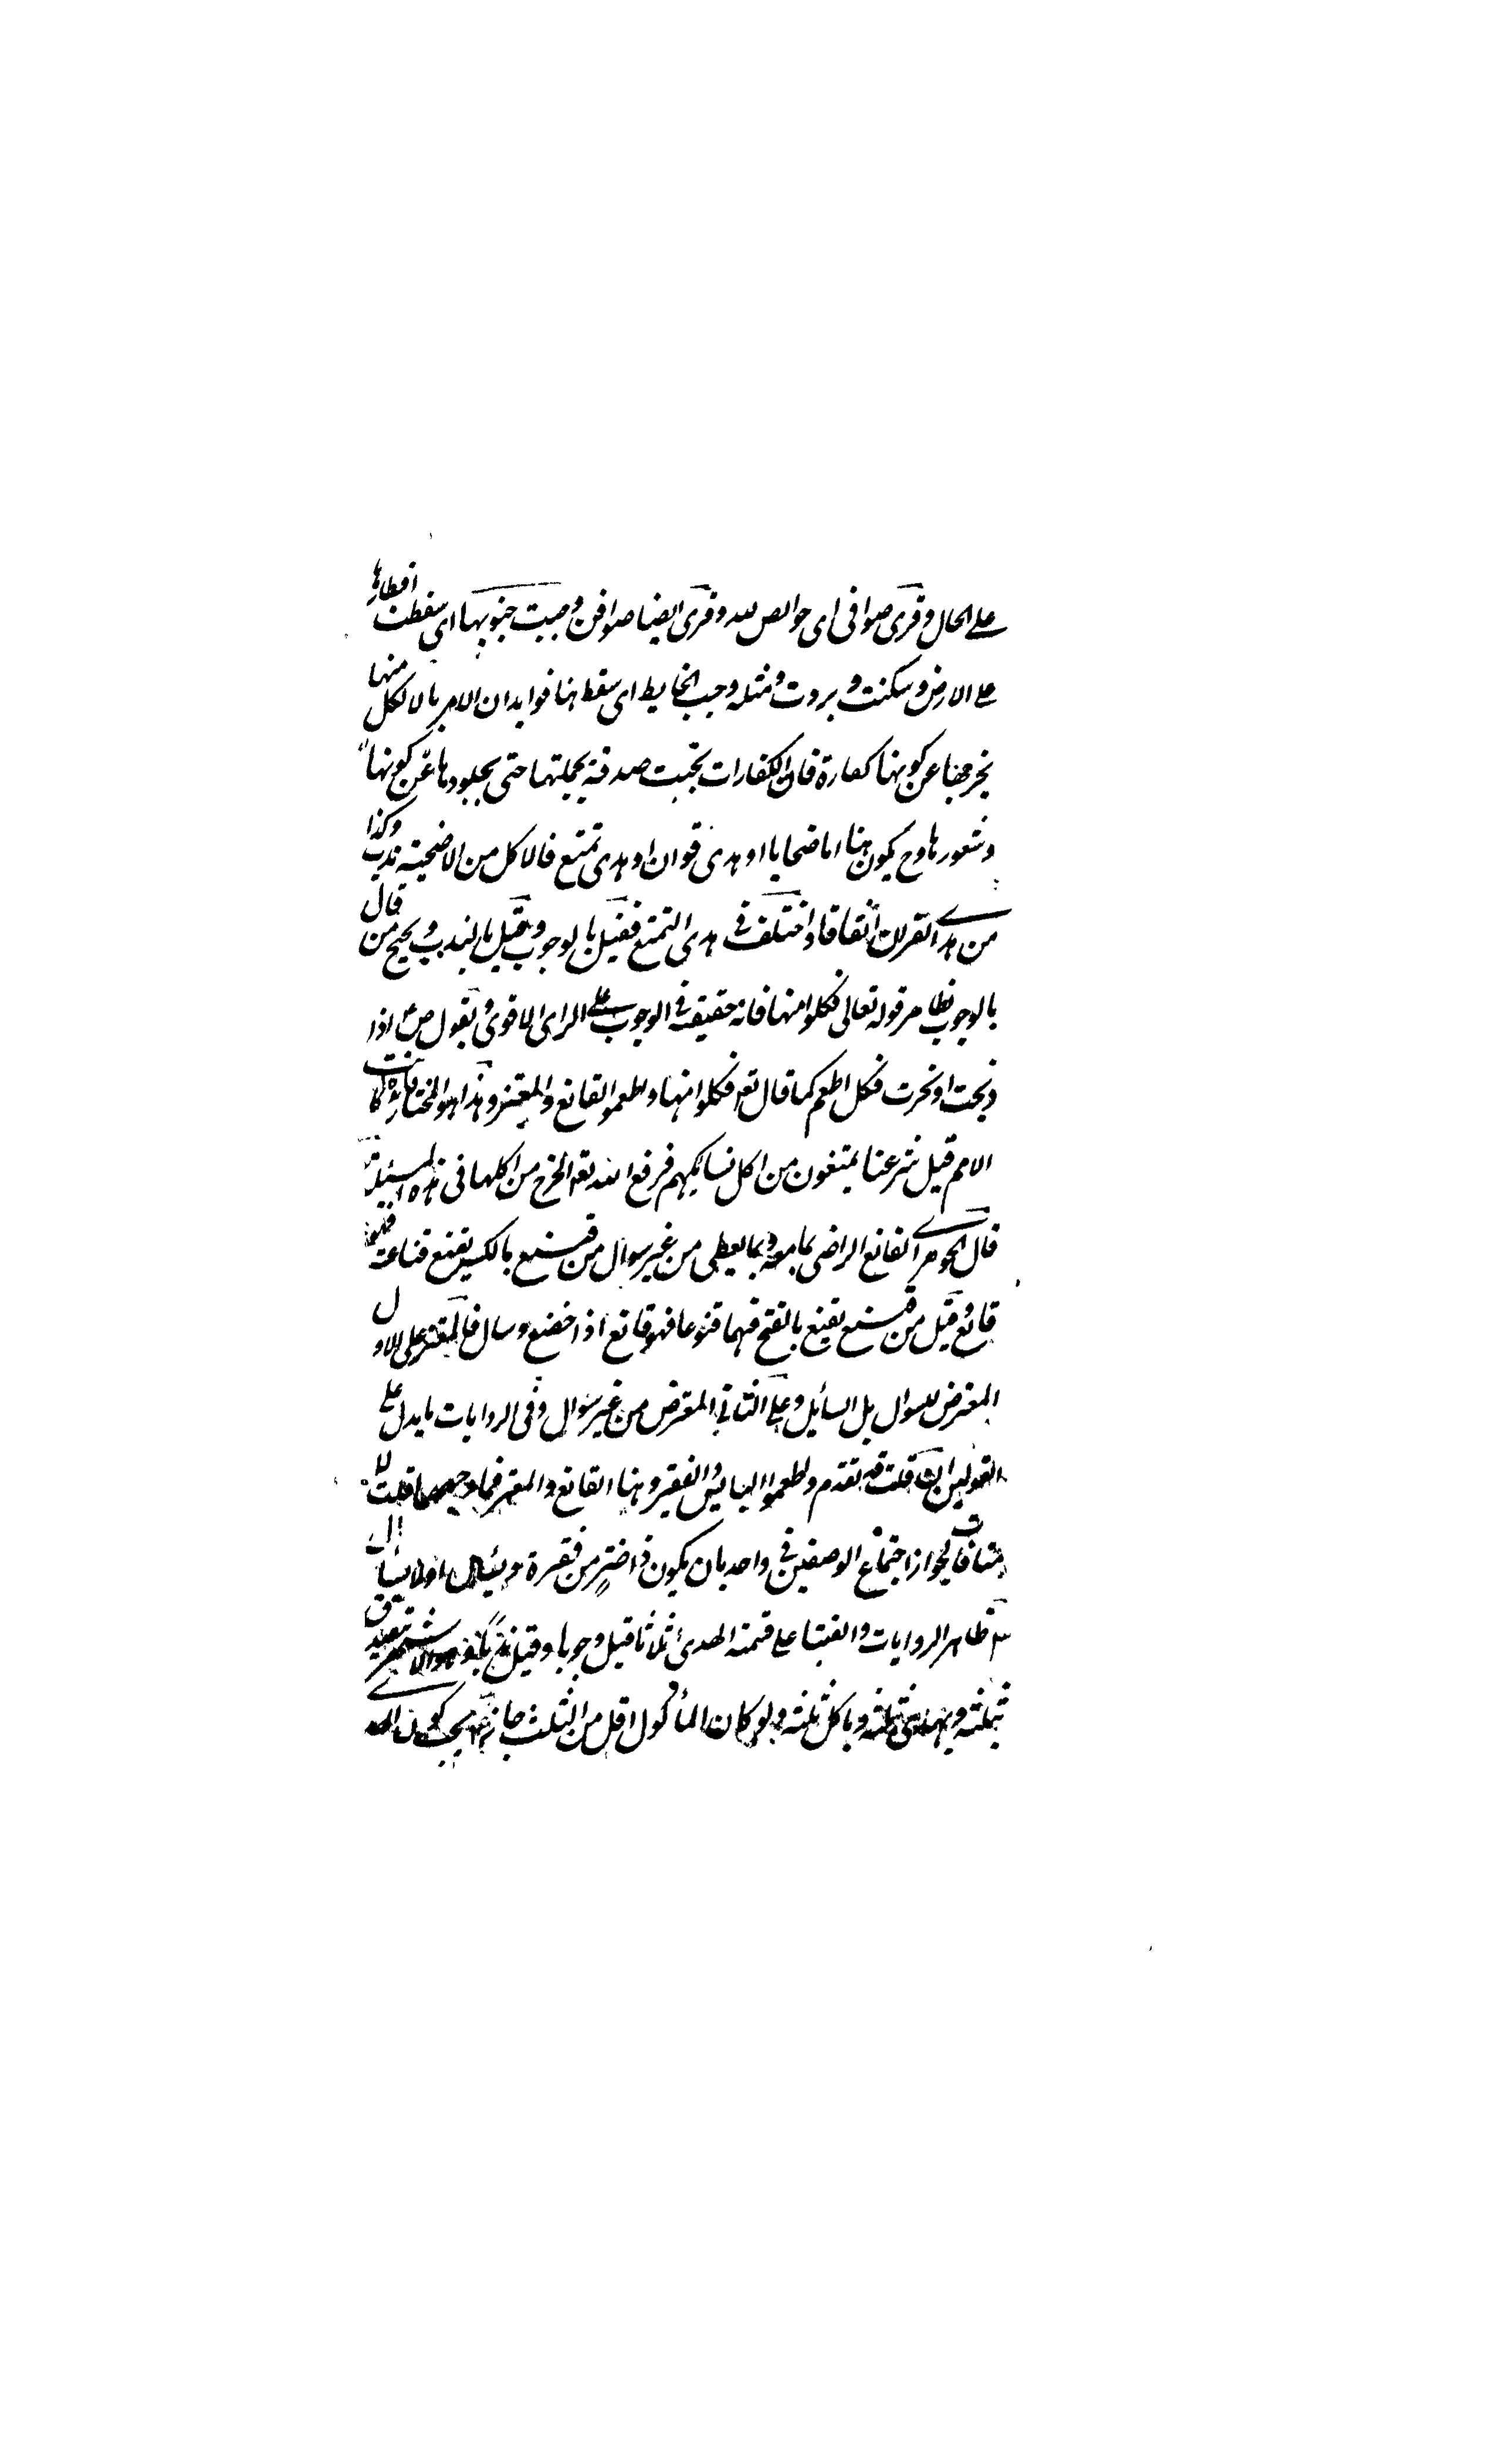 على الحال وقرى صوافى اى خوالص لله وقرى ايضا صوافن وجبت جنوبها اى سقطت اقطارها
على الارض وسكنت وبردت ومثله وجب الحايط اى سقط هنا فوايد ان الامر بالاكل منها
يخرجها عن كونها كفارة فان الكفارات يجب صدقة بجملتها حتى بجلودها عن كونها
وشعورها وح يكون هنا اما ضحايا او هدى قران او هدى تمتع فالاكل من الاضحية ندب وكذا
من هدى القران اتفاقا واختلف فى هدى التمتع فقيل بالوجوب وقيل بالندب ويحتج من قال
بالوجوب بظاهر قوله تعالى فكلوا منها فانه حقيقة فى الوجوب على الراى الاقوى وبقول ص اذا
ذبحت او نحرت فكل اطعم كما قال تع فكلوا منها واطعموا القانع والمعتر وهذا هو المختار كانت
الامم قبل شرعنا يمتنعون من اكل نسايكهم فرفع الله تع الحرج من اكلها فى هذه المسئلة
قال الجوهرى القانع الراضى بما معه وبما يعطى من غير سوال من قنع بالكسر يقنع قناعة فهو
قانع وقيل من قنع يقنع بالفتح فيهما قنوعا فهو قانع اذا خضع وسال فالمعتر على الاول
المعترض للسوال بل السائل وعلى الثانى المعترض من غير سوال وفى الروايات ما يدل على
القولين ان قلت قد تقدم واطعموا البائس الفقير وهنا القانع والمعتر فما وجههما قلت لا
منافات لجواز اجتماع الوصفين فى واحد بان يكون ذا ضر من فقره ويسال او لا يسال
ظاهر الروايات والفتيا على قسمة الهدى اثلاثا قيل وجوبا وقيل ندبا وهو الاشهر يتصدق
بثلثه ويهدى ثلثه وياكل ثلثه ولو كان الماكول اقل من الثلث جاز يجب كون الهدى